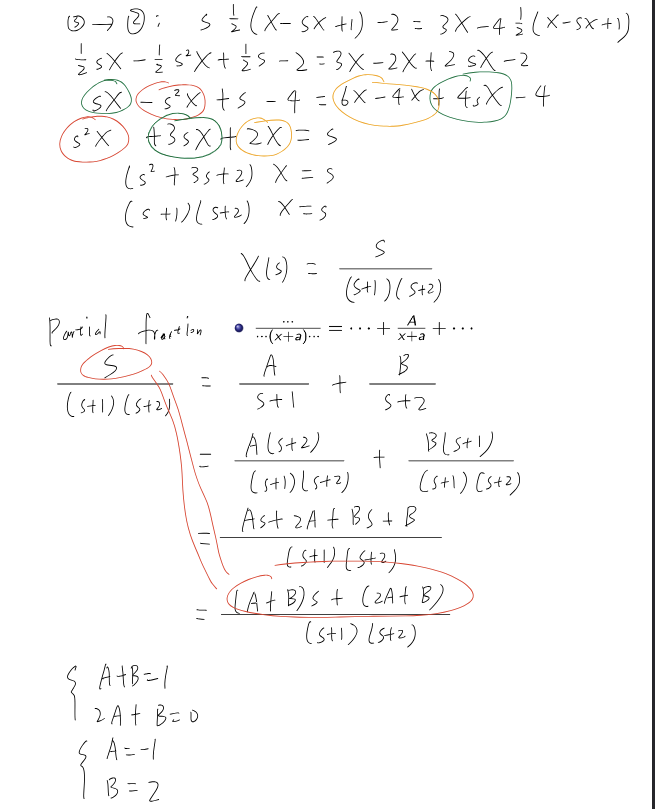 ③ → ②: s ½ (X - sX + 1) - 2 = 3X - 4 ½ (X - sX + 1)
½ sX - ½ s²X + ½ s - 2 = 3X - 2X + 2sX - 2
sX - s²X + s - 4 = 6X - 4X + 4sX - 4
s²X + 3sX + 2X = s
(s² + 3s + 2) X = s
(s + 1)(s + 2) X = s
X(s) = s / ((s+1)(s+2))
Partial fraction • ... / (···(x+a)···) = ··· + A/(x+a) + ···
s / ((s+1)(s+2)) = A / (s+1) + B / (s+2)
= A(s+2) / ((s+1)(s+2)) + B(s+1) / ((s+1)(s+2))
= (As + 2A + Bs + B) / ((s+1)(s+2))
= ((A + B)s + (2A + B)) / ((s+1)(s+2))
{ A+B=1
2A + B = 0
{ A = -1
B = 2